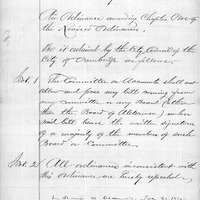 An Ordinance amending Chapter Two of the
Revised Ordinances.
Be it ordained by the City Council of the
City of Cambridge as follows:
Sect. 1 The Committee on Accounts shall not
allow and pass any bill coming from
any Committee or any Board (other
than the Board of Aldermen) unless
said bill bears the written signature
of a majority of the members of such
Board or Committee.
Sect. 2 All ordinances inconsistent with
this Ordinance are hereby repealed.